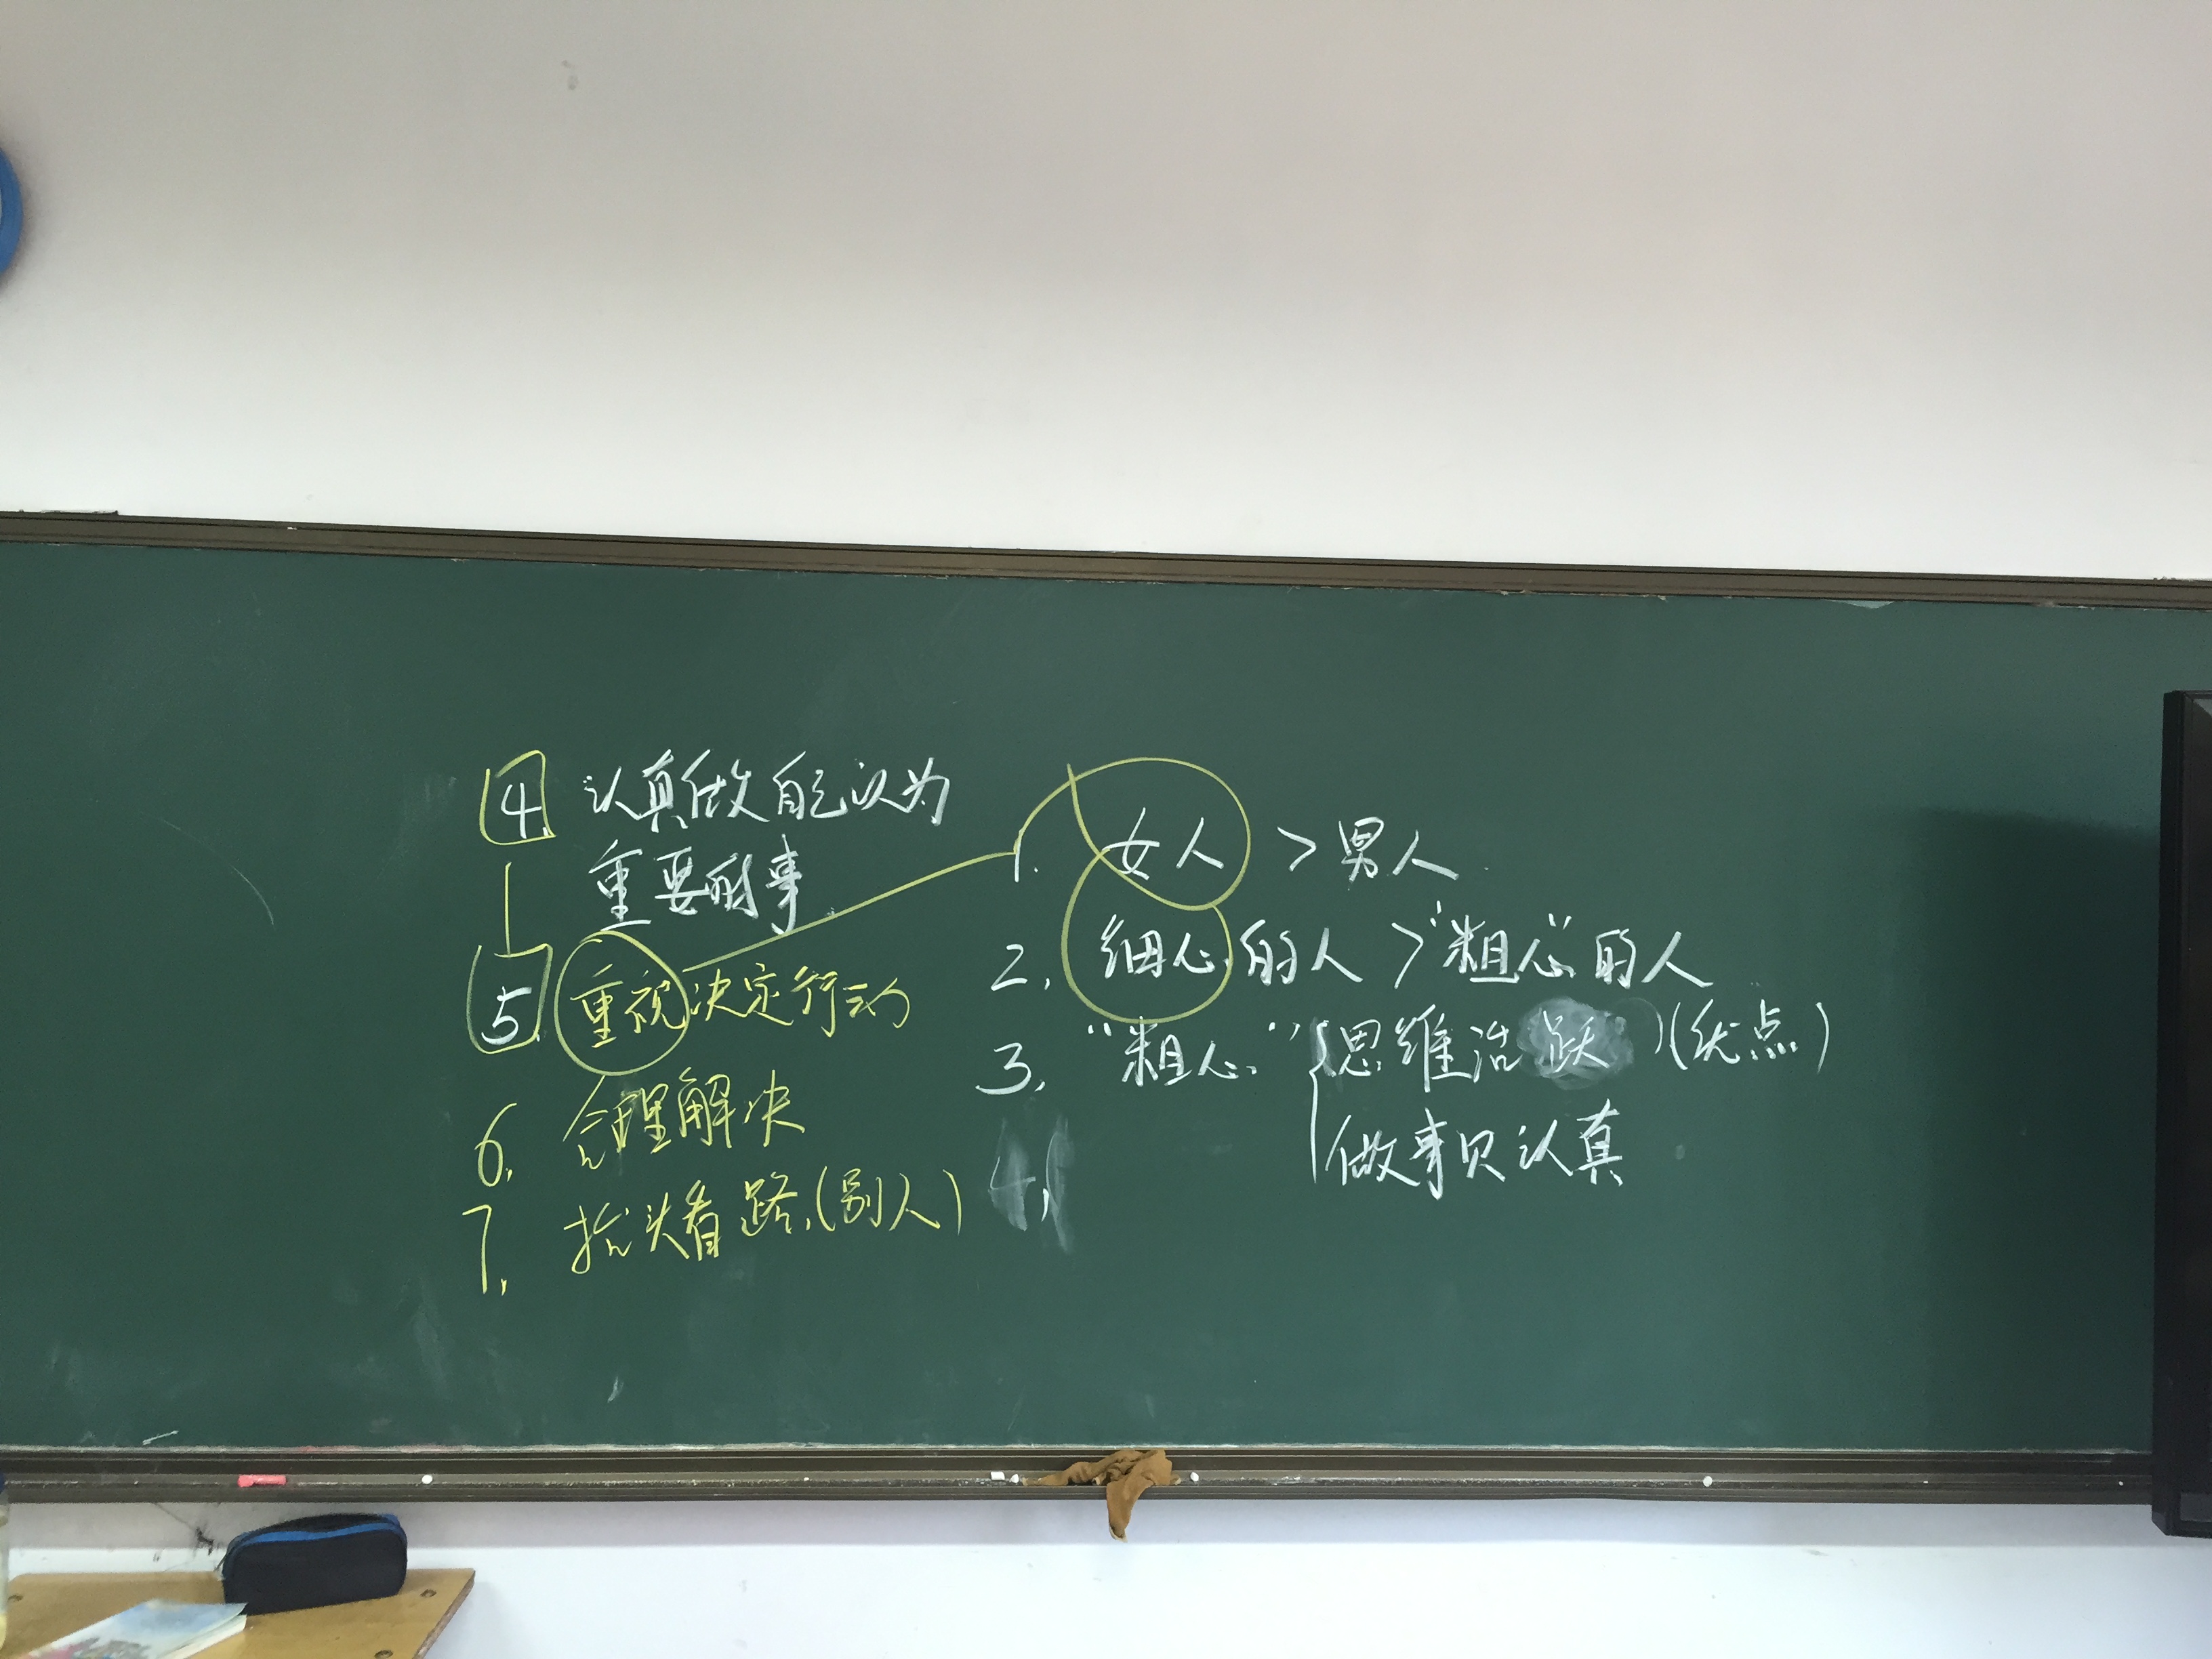 1. 女人 > 男人
2. 细心的人 > "粗心"的人
3. "粗心" { 思维活跃 (优点)
做事只认真
4.
4. 认真做自己认为
重要的事
5. 重视决定行动
6. 合理解决
7. 抬头看路.(别人)